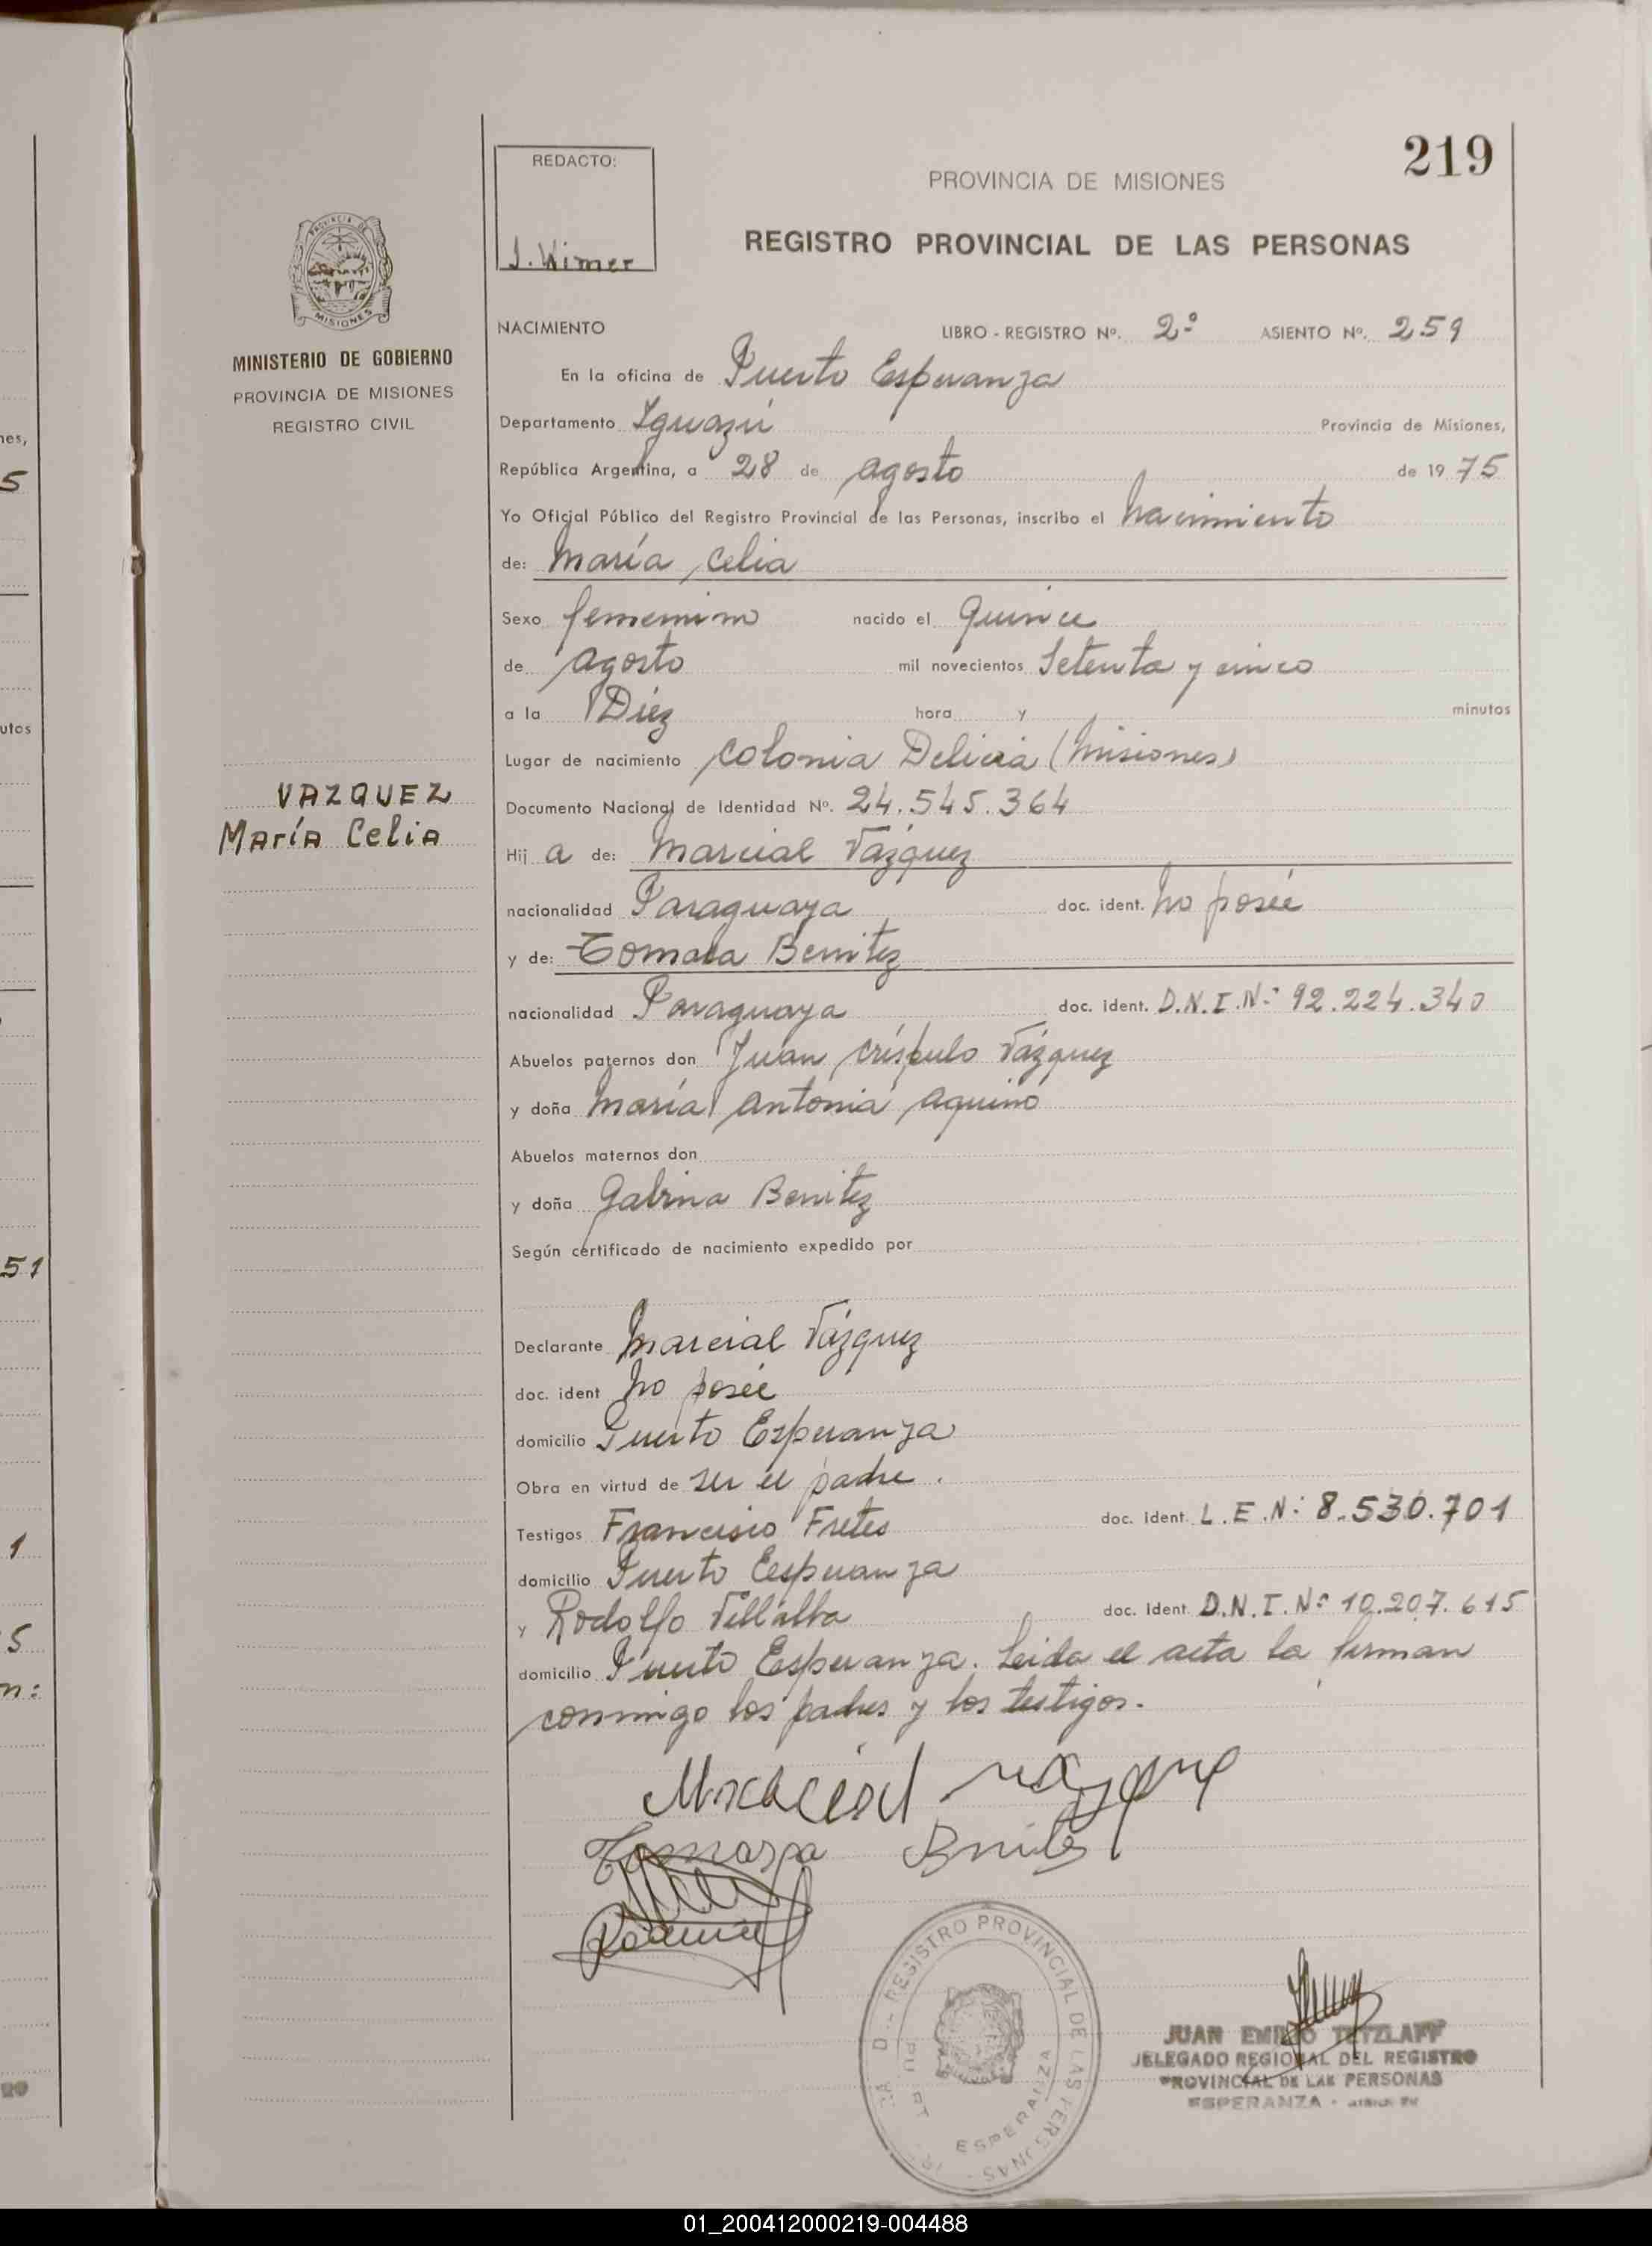 219
REDACTO:
J. Wimer
PROVINCIA DE MISIONES
REGISTRO PROVINCIAL DE LAS PERSONAS
PROVINCIA DE
MISIONES
MINISTERIO DE GOBIERNO
PROVINCIA DE MISIONES
REGISTRO CIVIL
NACIMIENTO LIBRO - REGISTRO Nº. 2º ASIENTO Nº. 259
En la oficina de Puerto Esperanza
Departamento Iguazú Provincia de Misiones,
República Argentina, a 28 de agosto de 19 75
Yo Oficial Público del Registro Provincial de las Personas, inscribo el nacimiento
de: María Celia
Sexo femenino nacido el Quince
de agosto mil novecientos Setenta y cinco
a la Diez hora y minutos
Lugar de nacimiento Colonia Delicia (Misiones)
VAZQUEZ
María Celia
Documento Nacional de Identidad Nº. 24.545.364
Hij a de: Marcial Vázquez
nacionalidad Paraguaya doc. ident. no posée
y de: Tomasa Benitez
nacionalidad Paraguaya doc. ident. D.N.I.Nº 92.224.340
Abuelos paternos don Juan Críspulo Vázquez
y doña María Antonia Aquino
Abuelos maternos don
y doña Gabina Benitez
Según certificado de nacimiento expedido por
Declarante Marcial Vázquez
doc. ident no posée
domicilio Puerto Esperanza
Obra en virtud de ser el padre.
Testigos Francisco Fretes doc. ident. L.E.Nº 8.530.701
domicilio Puerto Esperanza
y Rodolfo Villalba doc. ident. D.N.I.Nº 10.207.615
domicilio Puerto Esperanza. Leida el acta la firman
conmigo los padres y los testigos.
Tomaspa Bnites
REGISTRO PROVINCIAL DE LAS PERSONAS
ESPERANZA
JUAN EMILIO TETZLAFF
DELEGADO REGIONAL DEL REGISTRO
PROVINCIAL DE LAS PERSONAS
ESPERANZA -
nes,
5
utos
51
1
5
n:
01_200412000219-004488